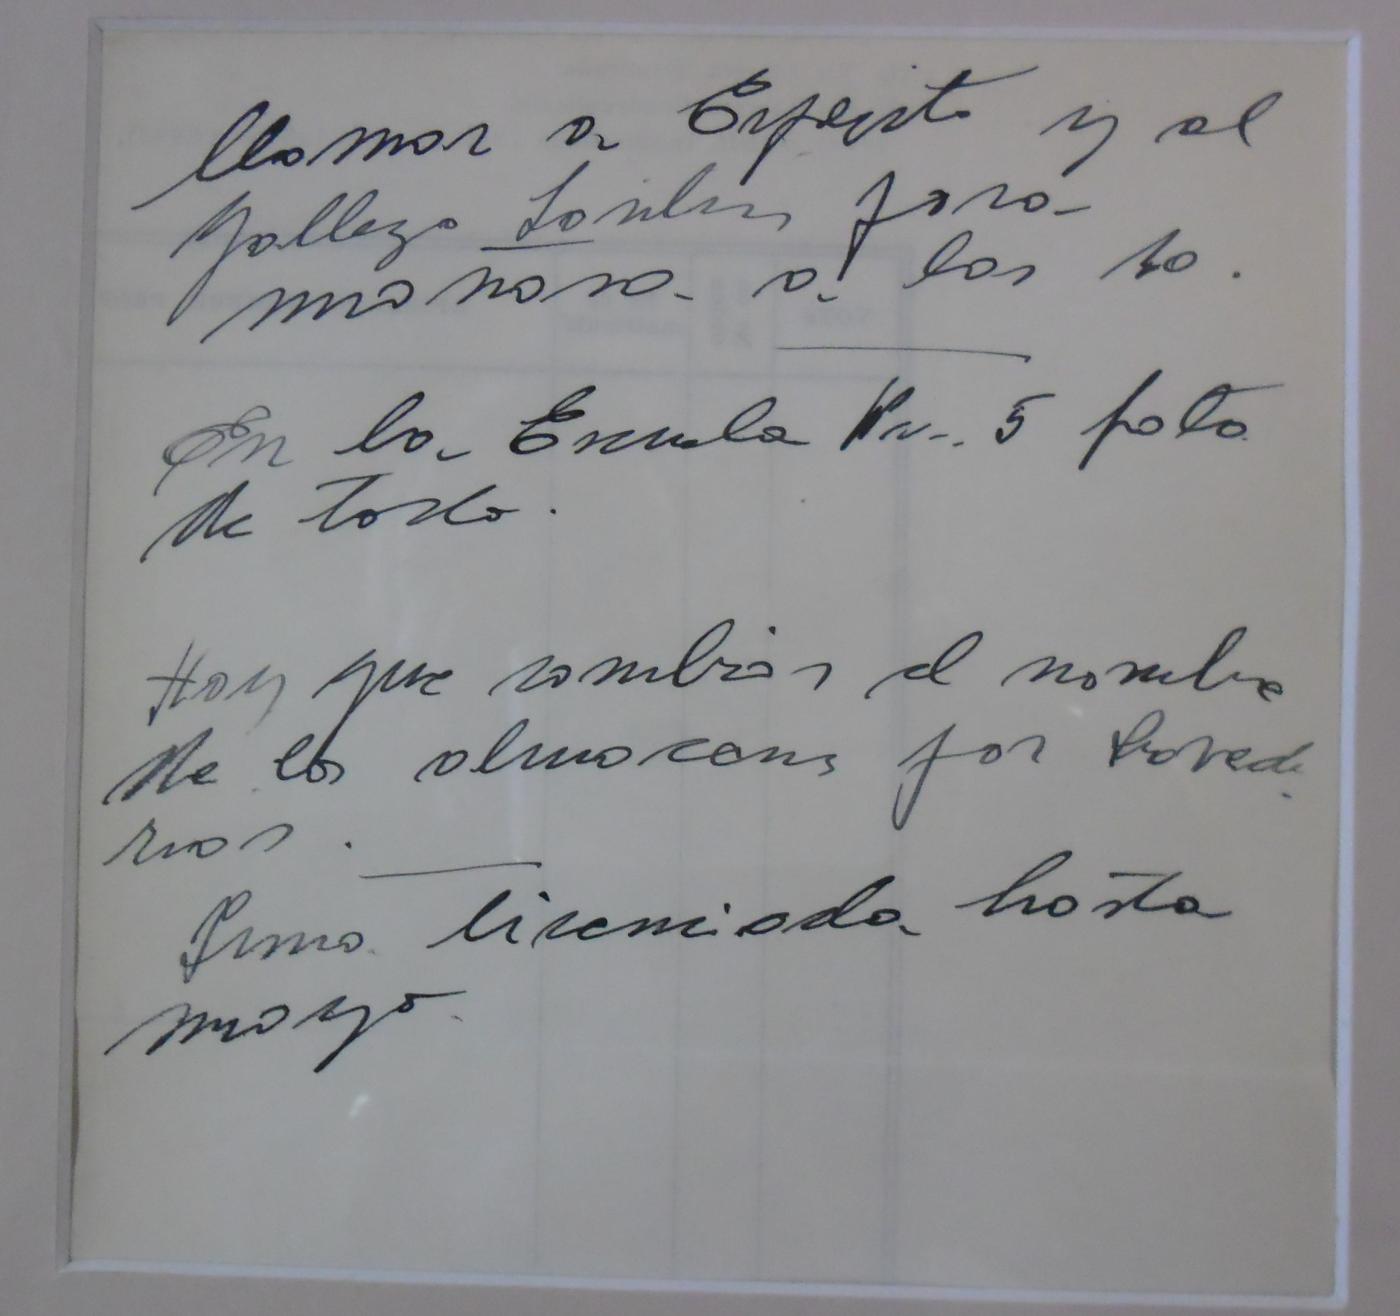 llamar a Espejito y al
gallego para
mañana a las 10.
En la Escuela No. 5 falta
de todo.
Hay que cambiar el nombre
de los almacenes por
rias.
licenciada hasta
mayo.